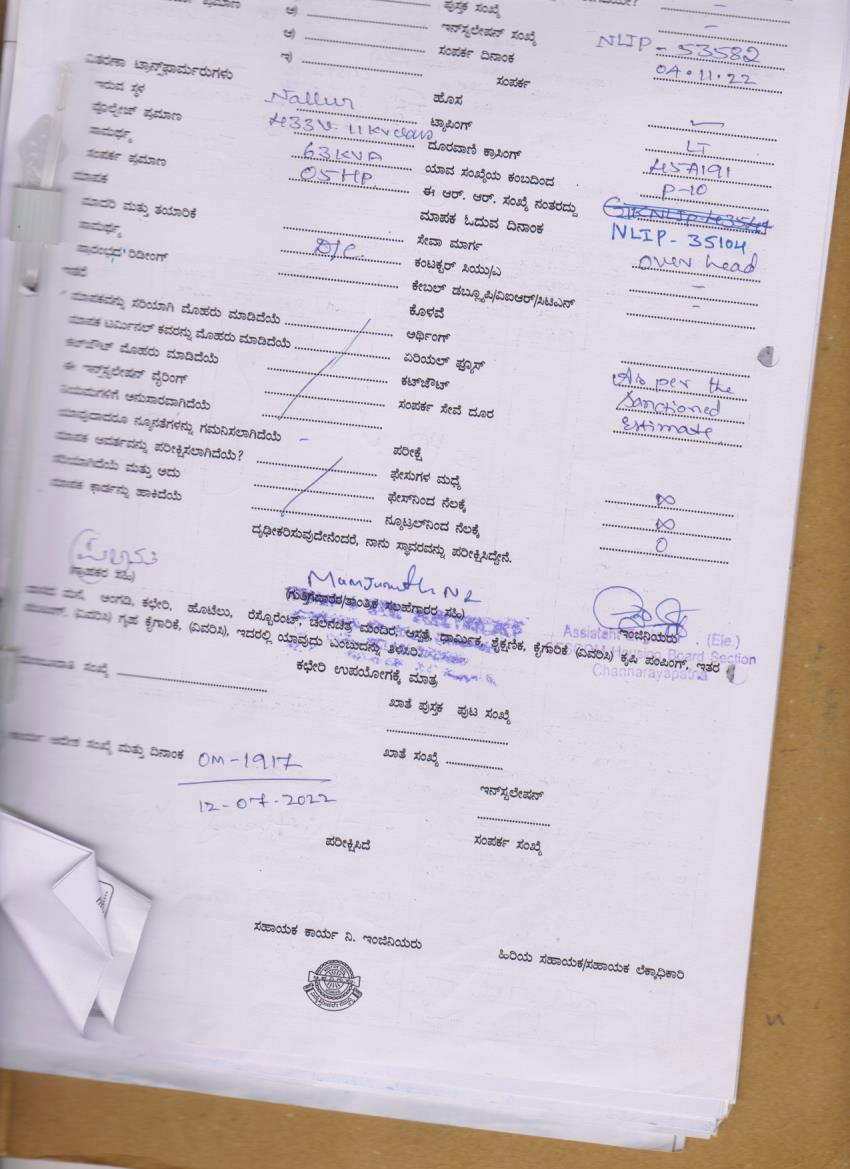 ಅ) ಪುಸ್ತಕ ಸಂಖ್ಯೆ -
ಆ) ಇನ್‌ಸ್ಟಲೇಷನ್ ಸಂಖ್ಯೆ NLIP - 53582
ಇ) ಸಂಪರ್ಕ ದಿನಾಂಕ 04.11.22
ವಿತರಣಾ ಟ್ರಾನ್ಸ್‌ಫಾರ್ಮರುಗಳು ಸಂಪರ್ಕ
ಇರುವ ಸ್ಥಳ Nallur ಹೊಸ
ವೋಲ್ಟೇಜ್ ಪ್ರಮಾಣ 433V-11KV class ಟ್ಯಾಪಿಂಗ್ LT
ಸಾಮರ್ಥ್ಯ 63KVA ದೂರವಾಣಿ ಕ್ರಾಸಿಂಗ್
ಸಂಪರ್ಕ ಪ್ರಮಾಣ 05HP ಯಾವ ಸಂಖ್ಯೆಯ ಕಂಬದಿಂದ P-10
ಮಾಪಕ ಈ ಆರ್. ಆರ್. ಸಂಖ್ಯೆ ನಂತರದ್ದು
ಮಾದರಿ ಮತ್ತು ತಯಾರಿಕೆ ಮಾಪಕ ಓದುವ ದಿನಾಂಕ NLIP - 35104
ಸಾಮರ್ಥ್ಯ D/C ಸೇವಾ ಮಾರ್ಗ over head
ಪ್ರಾರಂಭದ ರಿಡೀಂಗ್ ಕಂಟಕ್ಟರ್ ಸಿಯು/ಎ -
ಇತರೆ ಕೇಬಲ್ ಡಬ್ಲ್ಯೂಪಿ/ವಿಐಆರ್/ಸಿಟಿಎಸ್ -
ಮಾಪಕವನ್ನು ಸರಿಯಾಗಿ ಮೊಹರು ಮಾಡಿದೆಯೆ ಕೊಳವೆ
ಮಾಪಕ ಟರ್ಮಿನಲ್ ಕವರನ್ನು ಮೊಹರು ಮಾಡಿದೆಯೆ ಅರ್ಥಿಂಗ್
ಕಟ್‌ಔಟ್ ಮೊಹರು ಮಾಡಿದೆಯೆ ಏರಿಯಲ್ ಫ್ಯೂಸ್ As per the
ಈ ಇನ್‌ಸ್ಟಲೇಷನ್ ವೈರಿಂಗ್ ಕಟ್‌ಔಟ್ Sanctioned
ನಿಯಮಗಳಿಗೆ ಅನುಸಾರವಾಗಿದೆಯೆ ಸಂಪರ್ಕ ಸೇವೆ ದೂರ Estimate
ಯಾವುದಾದರೂ ನ್ಯೂನತೆಗಳನ್ನು ಗಮನಿಸಲಾಗಿದೆಯೆ - ಪರೀಕ್ಷೆ
ಮಾಪಕ ಆವರ್ತವನ್ನು ಪರೀಕ್ಷಿಸಲಾಗಿದೆಯೆ? ಫೇಸುಗಳ ಮಧ್ಯೆ ∞
ಸರಿಯಾಗಿದೆಯೆ ಮತ್ತು ಅದು ಫೇಸ್‌ನಿಂದ ನೆಲಕ್ಕೆ ∞
ಮಾಪಕ ಕಾರ್ಡನ್ನು ಹಾಕಿದೆಯೆ ನ್ಯೂಟ್ರಲ್‌ನಿಂದ ನೆಲಕ್ಕೆ 0
ದೃಢೀಕರಿಸುವುದೇನೆಂದರೆ, ನಾನು ಸ್ಥಾವರವನ್ನು ಪರೀಕ್ಷಿಸಿದ್ದೇನೆ.
(ಗ್ರಾಹಕರ ಸಹಿ) (ಗುತ್ತಿಗೆದಾರರ/ತಾಂತ್ರಿಕ ಸಲಹೆಗಾರರ ಸಹಿ) ಇಂಜಿನಿಯರು
Assistant (Ele.)
Housing Board Section
Channarayapatna
ಮನೆ, ಅಂಗಡಿ, ಕಛೇರಿ, ಹೊಟೆಲು, ರೆಸ್ಟೋರೆಂಟ್, ಚಲನಚಿತ್ರ ಮಂದಿರ, ಆಸ್ಪತ್ರೆ, ಧಾರ್ಮಿಕ, ಶೈಕ್ಷಣಿಕ, ಕೈಗಾರಿಕೆ (ವಿವರಿಸಿ) ಕೃಷಿ ಪಂಪಿಂಗ್, ಇತರ
(ವಿವರಿಸಿ) ಗೃಹ ಕೈಗಾರಿಕೆ, (ವಿವರಿಸಿ), ಇದರಲ್ಲಿ ಯಾವುದು ಎಂಬುದನ್ನು ತಿಳಿಸಿರಿ.
ಕಛೇರಿ ಉಪಯೋಗಕ್ಕೆ ಮಾತ್ರ
ಸಂಖ್ಯೆ ಖಾತೆ ಪುಸ್ತಕ ಪುಟ ಸಂಖ್ಯೆ
ಆದೇಶ ಸಂಖ್ಯೆ ಮತ್ತು ದಿನಾಂಕ OM-1917 ಖಾತೆ ಸಂಖ್ಯೆ
12-07-2022 ಇನ್‌ಸ್ಟಲೇಷನ್
ಪರೀಕ್ಷಿಸಿದೆ ಸಂಪರ್ಕ ಸಂಖ್ಯೆ
ಸಹಾಯಕ ಕಾರ್ಯ ನಿ. ಇಂಜಿನಿಯರು ಹಿರಿಯ ಸಹಾಯಕ/ಸಹಾಯಕ ಲೆಕ್ಕಾಧಿಕಾರಿ